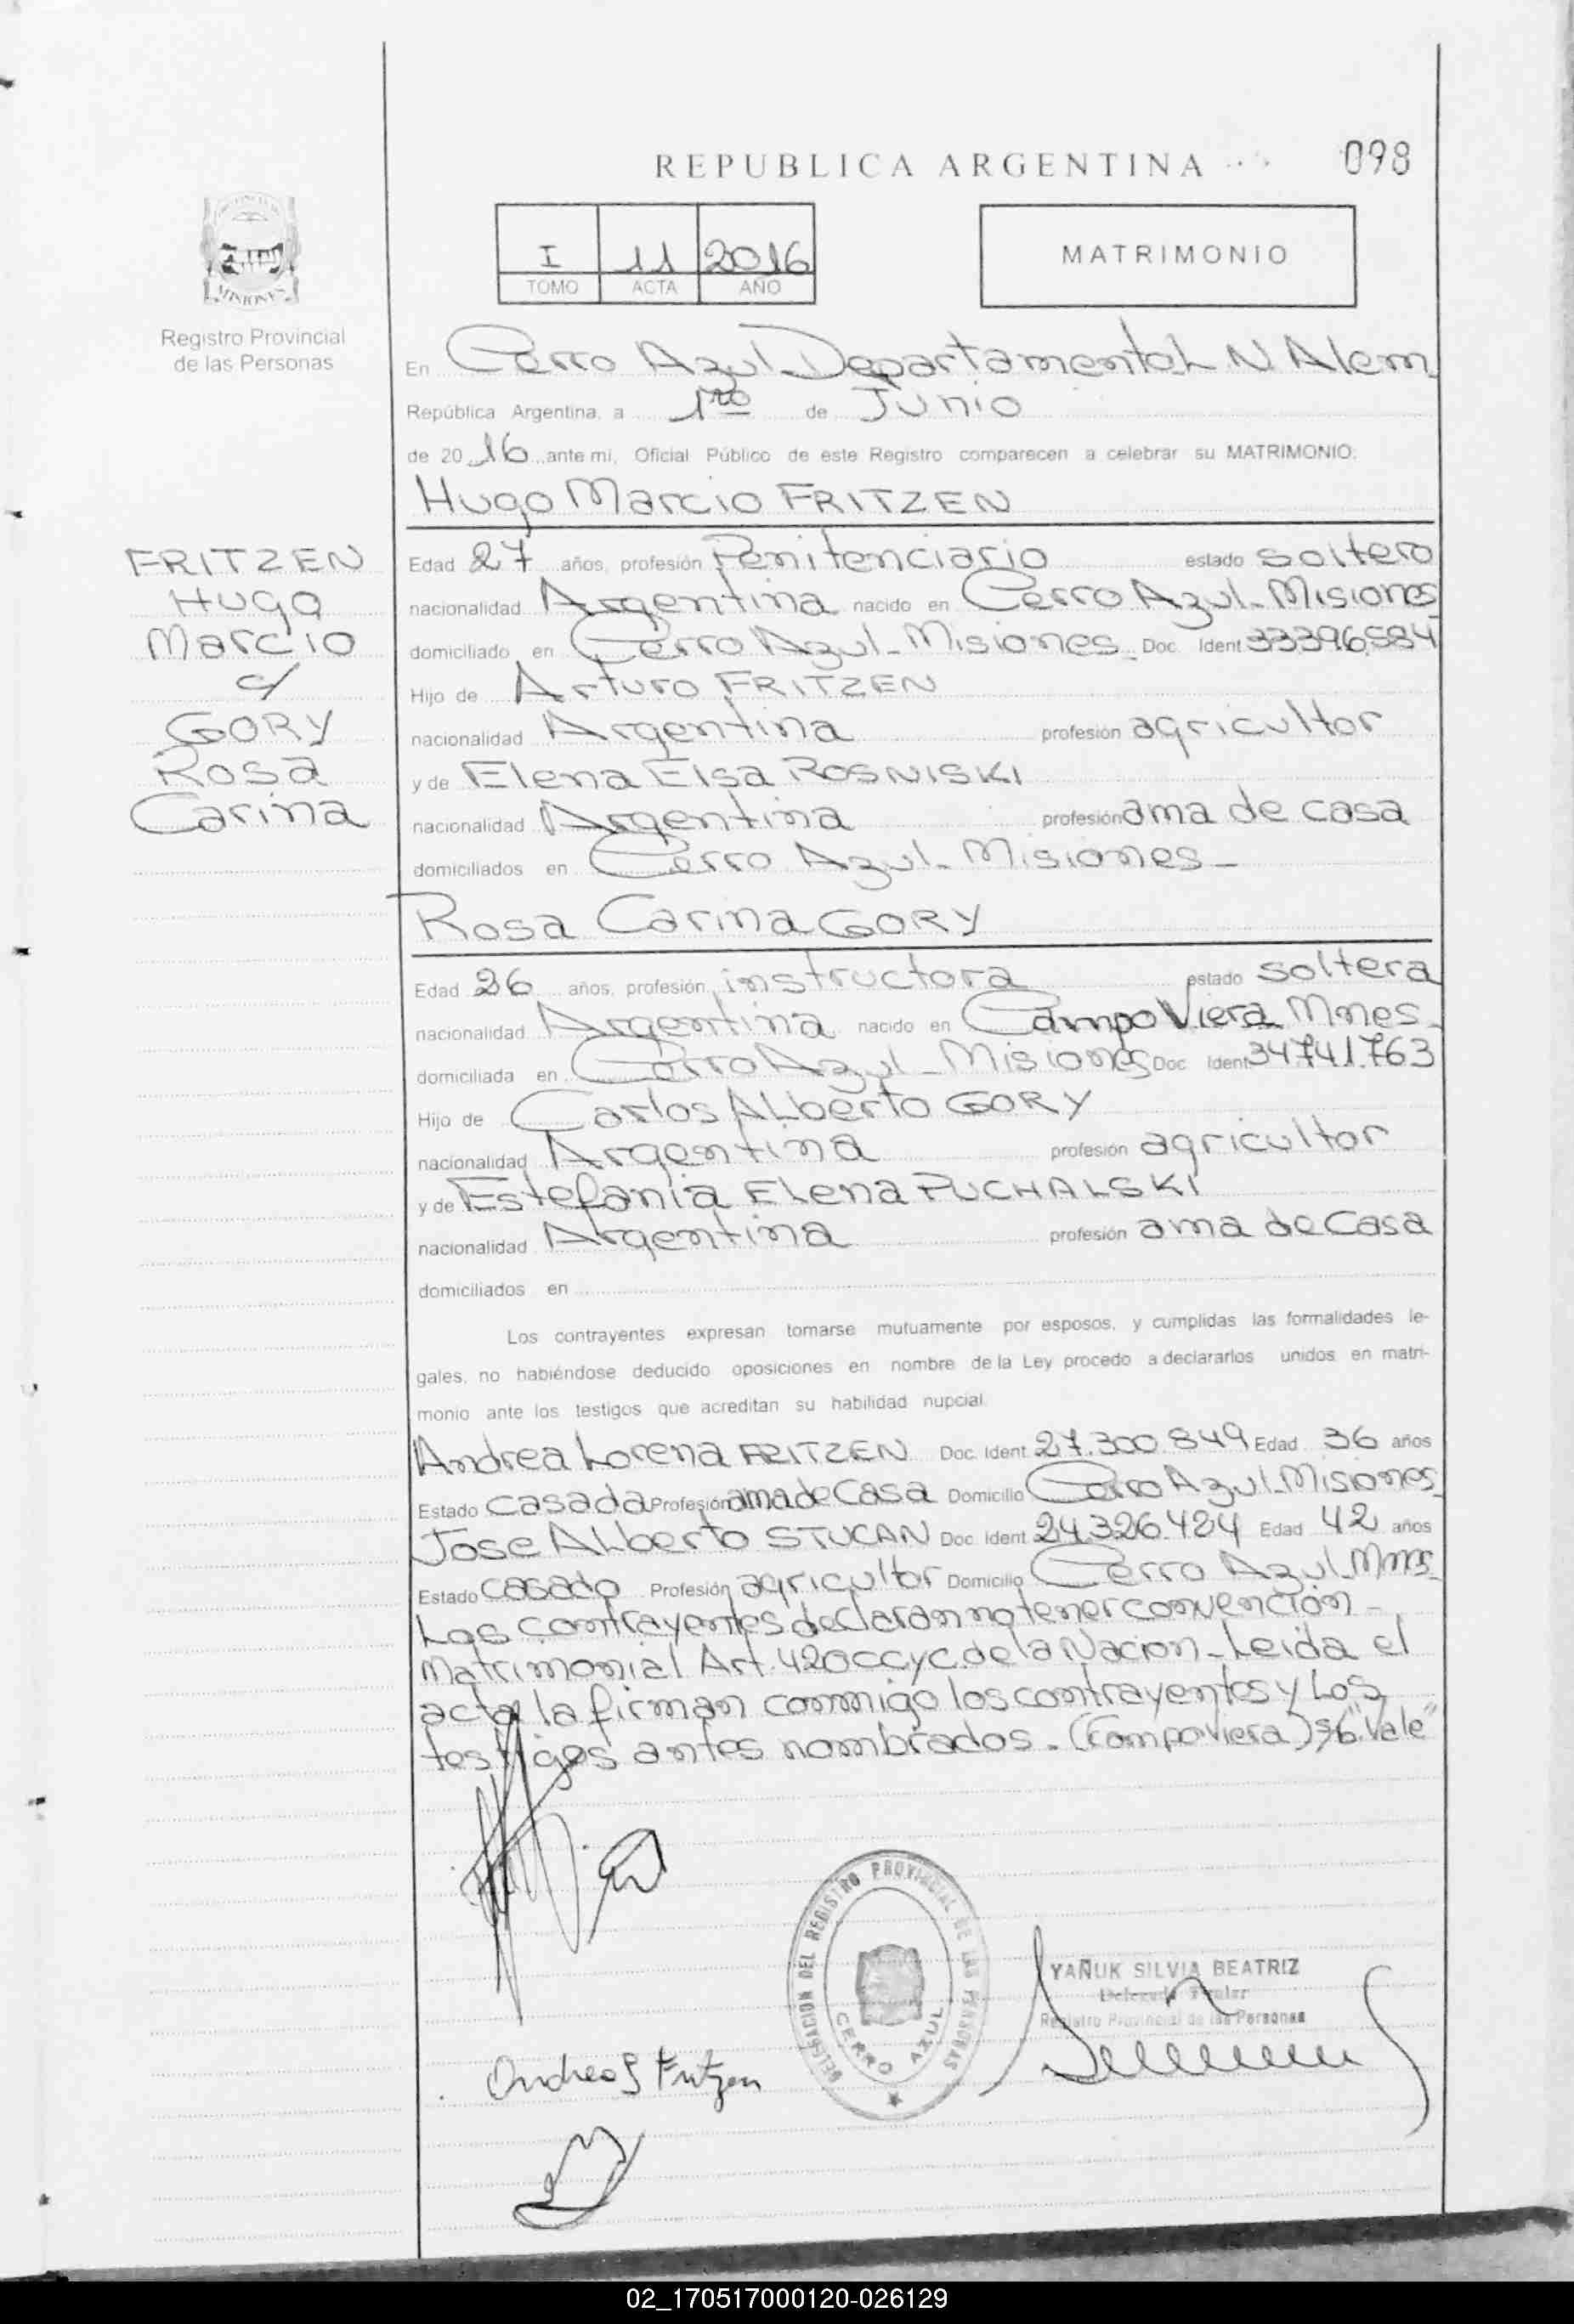 REPUBLICA ARGENTINA
098
I 11 2016
TOMO ACTA AÑO
MATRIMONIO
MISIONES
Registro Provincial
de las Personas
En Cerro Azul Departamental N. Alem
República Argentina, a 1ro de Junio
de 2016 ante mi, Oficial Público de este Registro comparecen a celebrar su MATRIMONIO:
Hugo Marcio FRITZEN
FRITZEN
Hugo
Marcio
c/
GORY
Rosa
Carina
Edad 27 años, profesión Penitenciario estado soltero
nacionalidad Argentina nacido en Cerro Azul-Misiones
domiciliado en Cerro Azul-Misiones- Doc. Ident 33396.584
Hijo de Arturo FRITZEN
nacionalidad Argentina profesión agricultor
y de Elena Elsa ROSNISKI
nacionalidad Argentina profesión ama de casa
domiciliados en Cerro Azul-Misiones-
Rosa Carina GORY
Edad 26 años, profesión instructora estado soltera
nacionalidad Argentina nacido en Campo Viera Mnes-
domiciliada en Cerro Azul-Misiones Doc. Ident 34.741.763
Hijo de Carlos ALberto GORY
nacionalidad Argentina profesión agricultor
y de Estefania ELena PUCHALSKI
nacionalidad Argentina profesión ama de Casa
domiciliados en
Los contrayentes expresan tomarse mutuamente por esposos, y cumplidas las formalidades le-
gales, no habiéndose deducido oposiciones en nombre de la Ley procedo a declararlos unidos en matri-
monio ante los testigos que acreditan su habilidad nupcial.
Andrea Lorena FRITZEN Doc. Ident 27.300.849 Edad 36 años
Estado Casada Profesión ama de Casa Domicilio Cerro Azul-Misiones
Jose ALberto STUCAN Doc. Ident 24.326.424 Edad 42 años
Estado Casado Profesión agricultor Domicilio Cerro Azul-Mnes-
Los contrayentes declaran no tener convención-
Matrimonial Art. 420 CCyC. de la Nacion-Leida el
acta la firman conmigo los contrayentes y Los
testigos antes nombrados.- (Campo Viera) s/b "Vale"
DELEGACION DEL REGISTRO PROVINCIAL DE LAS PERSONAS
CERRO AZUL
YAÑUK SILVIA BEATRIZ
Delegada Titular
Registro Provincial de las Personas
Andrea Fritzen
02_170517000120-026129